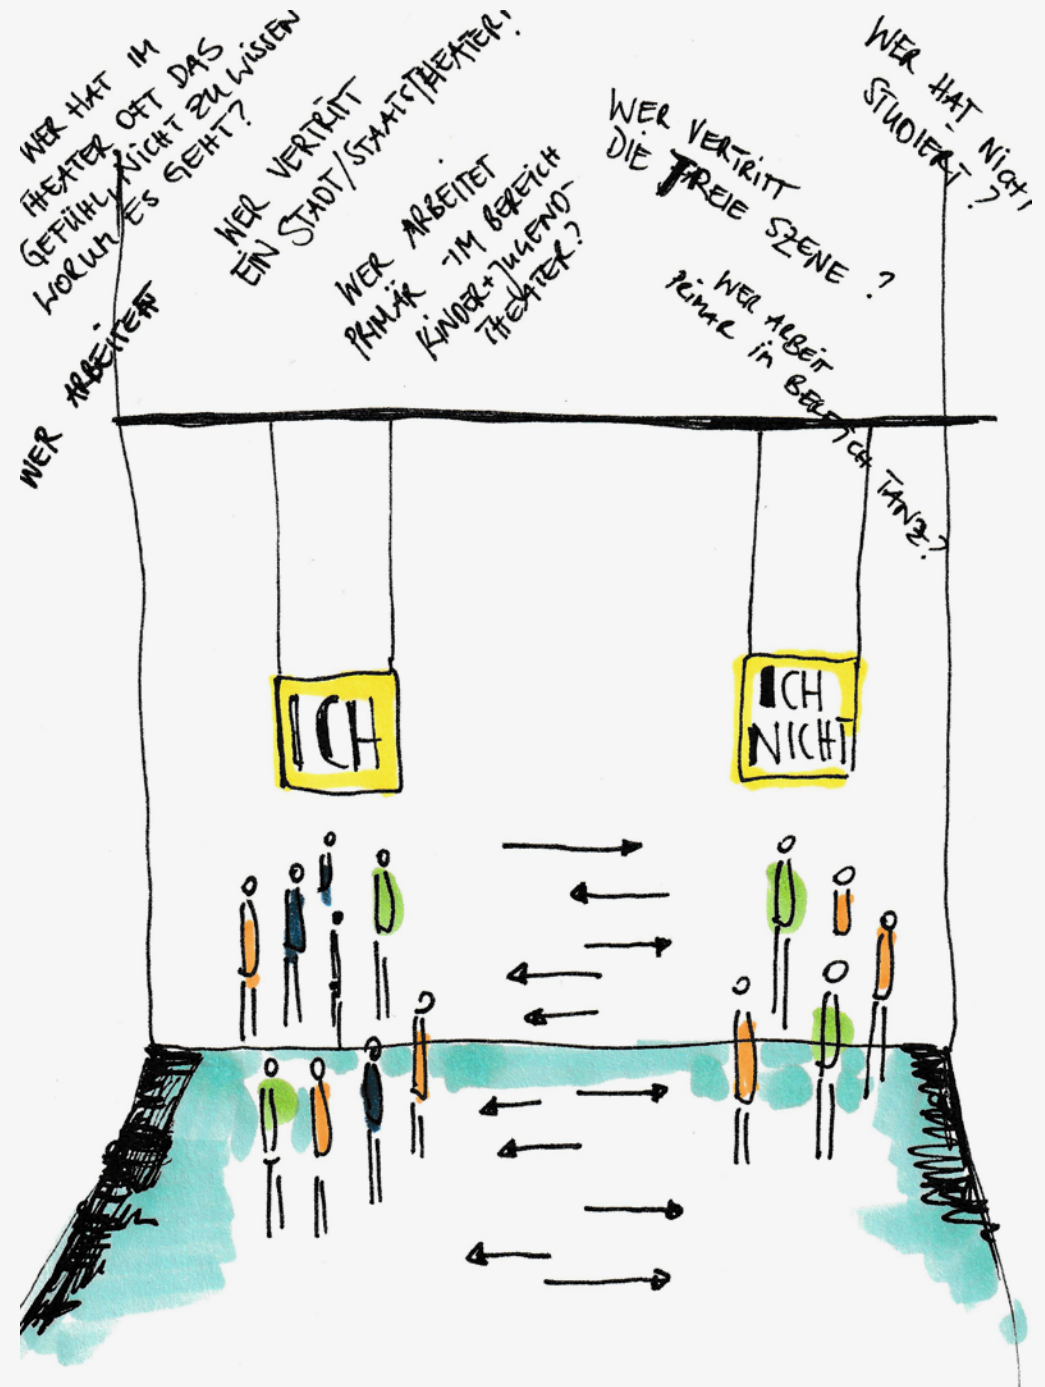 WER HAT IM
THEATER OFT DAS
GEFÜHL, NICHT ZU WISSEN
WORUM ES GEHT?
WER VERTRITT
EIN STADT/STAATSTHEATER?
WER ARBEITET
PRIMÄR IM BEREICH
KINDER+JUGEND-
THEATER?
WER VERTRITT
DIE FREIE SZENE?
WER HAT NICHT
STUDIERT?
WER ARBEIT
PRIMÄR IN BEREICH TANZ?
WER ARBEITET
ICH
ICH
NICHT